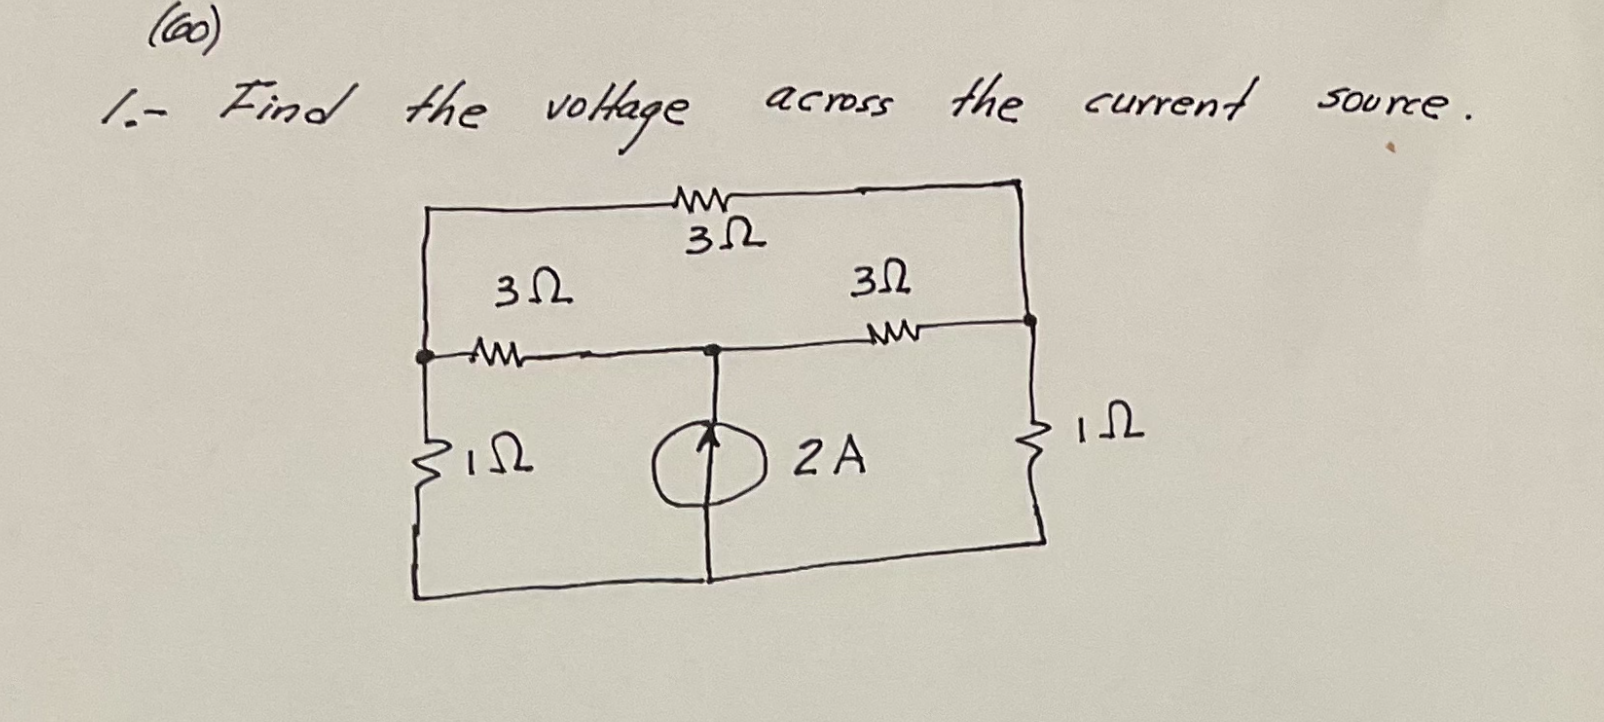 (60)
1.- Find the voltage across the current source.
3Ω
3Ω
3Ω
1Ω
2A
1Ω